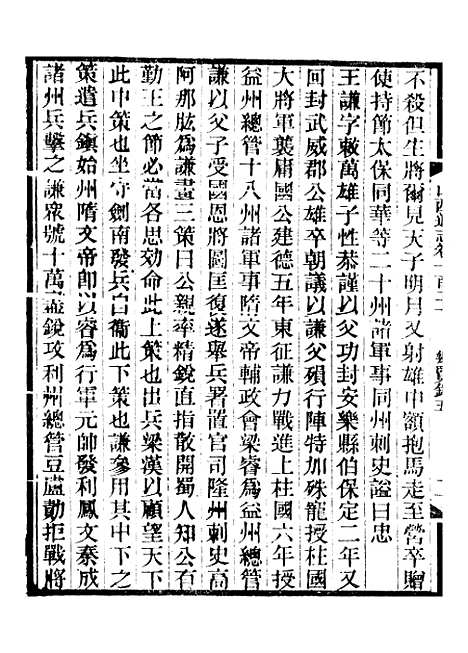 不殺但生將爾見天子明月又射雄中額抱馬走至營卒贈
使持節太保同華等二十州諸軍事同州刺史諡曰忠
王謙字敕萬雄子性恭謹以父功封安樂縣伯保定二年又
回封武威郡公雄卒朝議以謙父殞行陣特加殊寵授柱國
大將軍襲庸國公建德五年東征謙力戰進上柱國六年授
益州總管十八州諸軍事隋文帝輔政會梁睿爲益州總管
謙以父子受國恩將圖匡復遂舉兵署置官司隆州刺史高
阿那肱爲謙畫三策曰公親率精銳直指散關蜀人知公有
勤王之節必當各思効命此上策也出兵梁漢以顧望天下
此中策也坐守劍南發兵自衞此下策也謙參用其中下之
策遣兵鎮始州隋文帝即以睿爲行軍元帥發利鳳文秦成
諸州兵擊之謙衆號十萬盡銳攻利州總管豆盧勣拒戰將
山西通志卷一百二